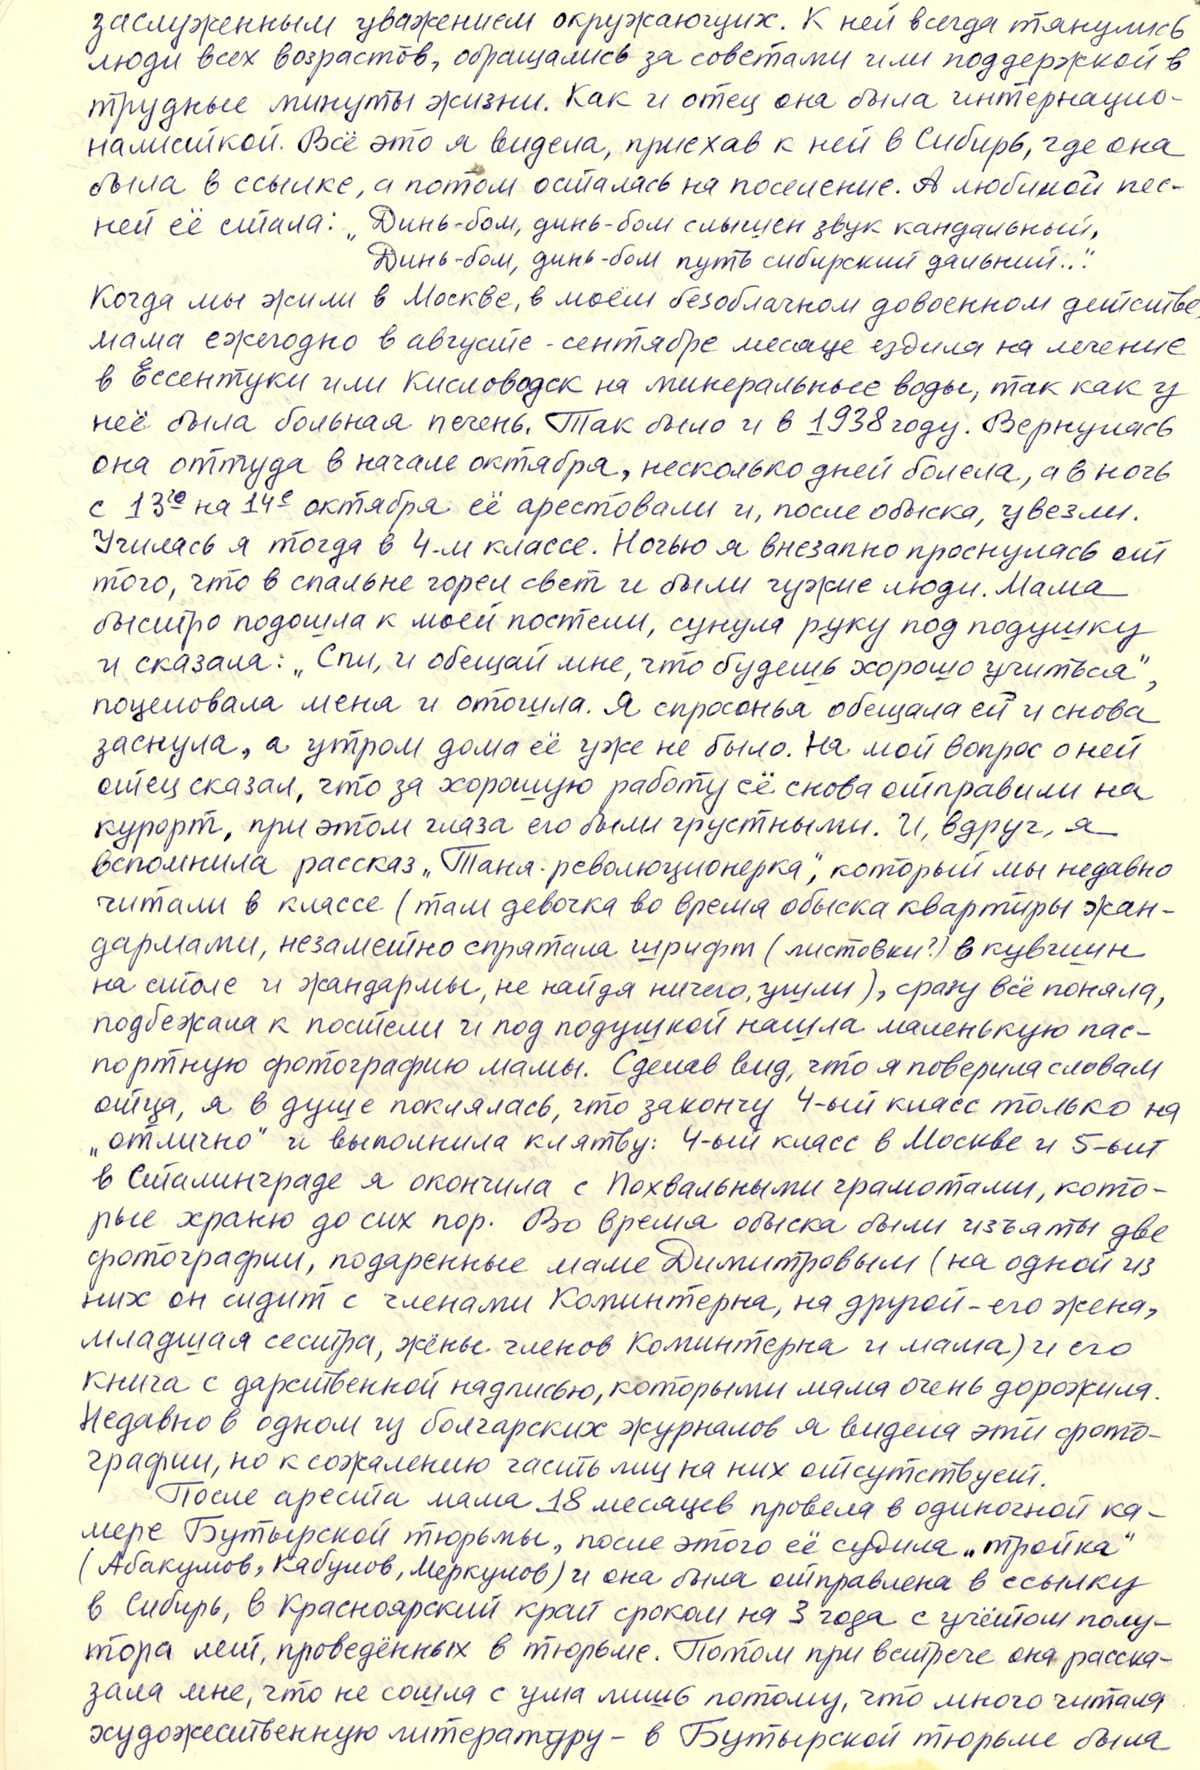 заслуженным уважением окружающих. К ней всегда тянулись
люди всех возрастов, обращались за советами или поддержкой в
трудные минуты жизни. Как и отец она была интернацио-
налисткой. Всё это я видела, приехав к ней в Сибирь, где она
была в ссылке, а потом осталась на поселение. А любимой пес-
ней её стала: „Динь-бом, динь-бом слышен звук кандальный,
Динь-бом, динь-бом путь сибирский дальний..."
Когда мы жили в Москве, в моём безоблачном довоенном детстве,
мама ежегодно в августе-сентябре месяце ездила на лечение
в Ессентуки или Кисловодск на минеральные воды, так как у
неё была больная печень. Так было и в 1938 году. Вернулась
она оттуда в начале октября, несколько дней болела, а в ночь
с 13го на 14е октября её арестовали и, после обыска, увезли.
Училась я тогда в 4-м классе. Ночью я внезапно проснулась от
того, что в спальне горел свет и были чужие люди. Мама
быстро подошла к моей постели, сунула руку под подушку
и сказала: „Спи, и обещай мне, что будешь хорошо учиться",
поцеловала меня и отошла. Я спросонья обещала ей и снова
заснула, а утром дома её уже не было. На мой вопрос о ней
отец сказал, что за хорошую работу её снова отправили на
курорт, при этом глаза его были грустными. И, вдруг, я
вспомнила рассказ „Таня-революционерка", который мы недавно
читали в классе (там девочка во время обыска квартиры жан-
дармами, незаметно спрятала шрифт (листовки?) в кувшин
на столе и жандармы, не найдя ничего, ушли), сразу всё поняла,
подбежала к постели и под подушкой нашла маленькую пас-
портную фотографию мамы. Сделав вид, что я поверила словам
отца, я в душе поклялась, что закончу 4-ый класс только на
„отлично" и выполнила клятву: 4-ый класс в Москве и 5-ый
в Сталинграде я окончила с Похвальными грамотами, кото-
рые храню до сих пор. Во время обыска были изъяты две
фотографии, подаренные маме Димитровым (на одной из
них он сидит с членами Коминтерна, на другой - его жена,
младшая сестра, жёны членов Коминтерна и мама) и его
книга с дарственной надписью, которыми мама очень дорожила.
Недавно в одном из болгарских журналов я видела эти фото-
графии, но к сожалению часть лиц на них отсутствует.
После ареста мама 18 месяцев провела в одиночной ка-
мере Бутырской тюрьмы, после этого её судила „тройка"
(Абакумов, Кабулов, Меркулов) и она была отправлена в ссылку
в Сибирь, в Красноярский край сроком на 3 года с учётом полу-
тора лет, проведённых в тюрьме. Потом при встрече она расска-
зала мне, что не сошла с ума лишь потому, что много читала
художественную литературу - в Бутырской тюрьме была